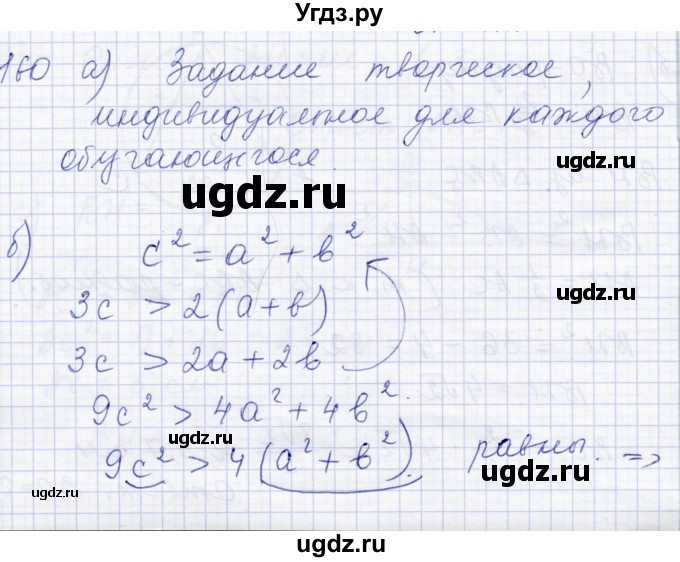 Угдз.ру
160 а) Задание творческое,
индивидуальное для каждого
обучающегося.
ugdz.ru
ugdz.ru
б) c² = a² + b²
ugdz.ru
3c > 2(a+b)
3c > 2a + 2b
9c² > 4a² + 4b².
ugdz.ru
ugdz.ru
9c² > 4(a² + b²). равны. ⇒
ugdz.ru
ugdz.ru
ugdz.ru